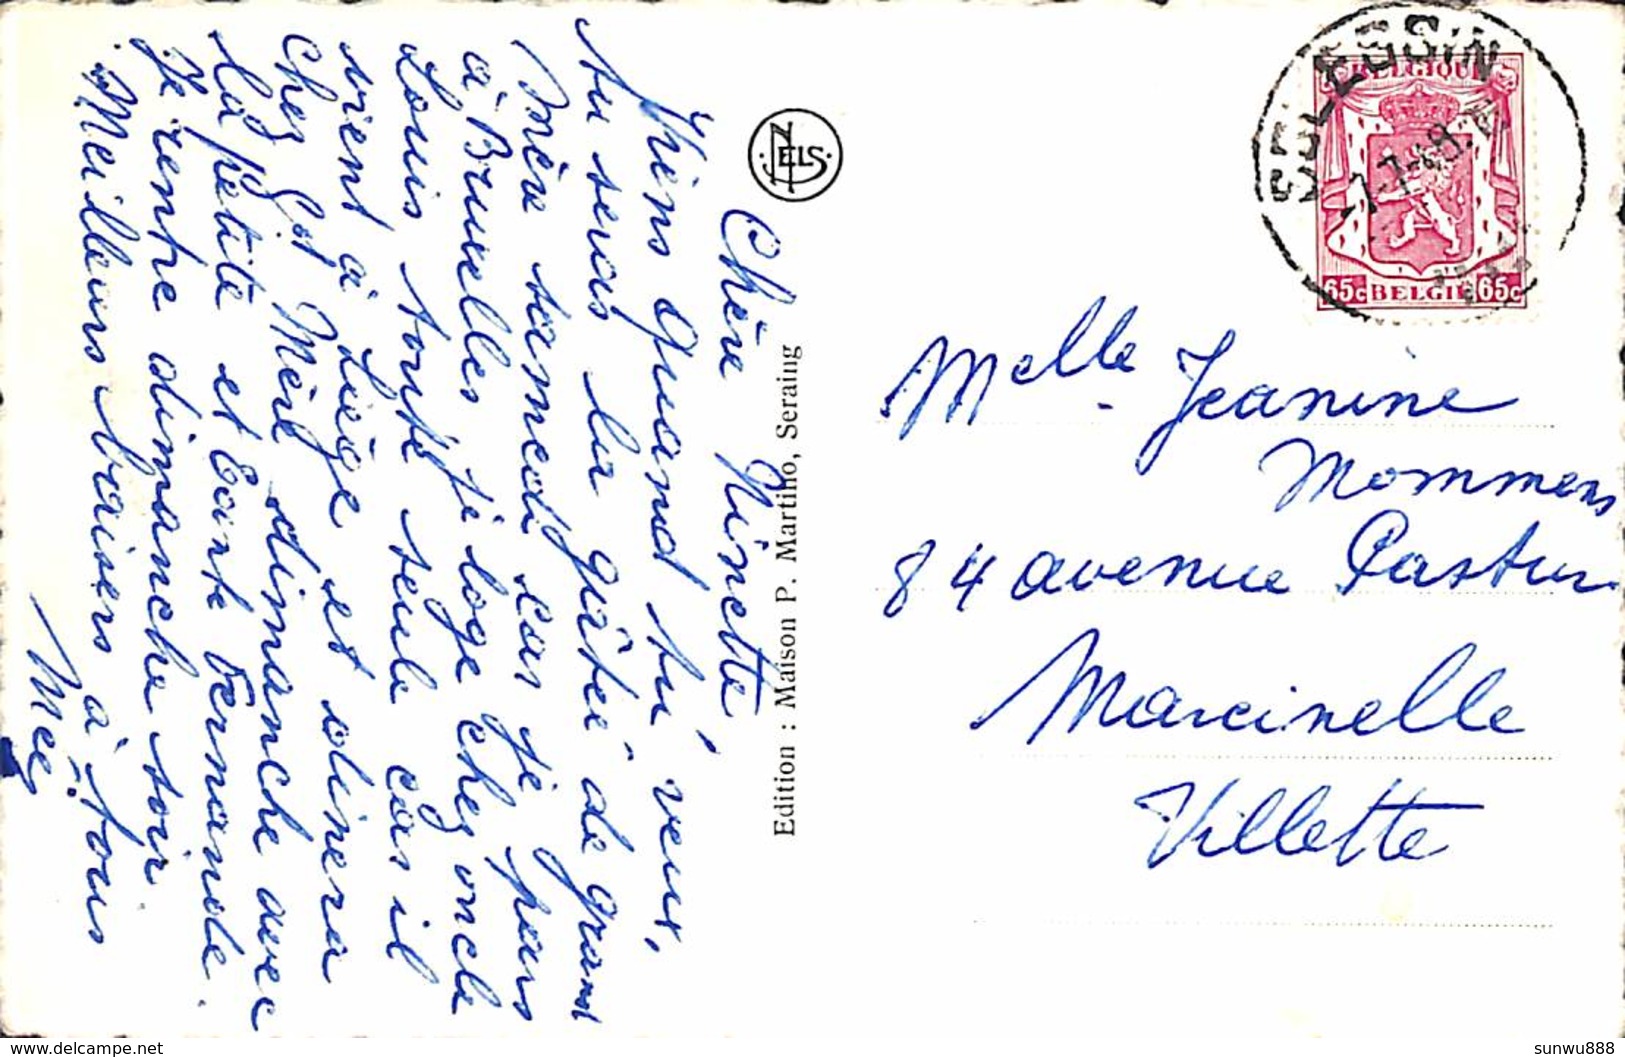 Chère Ninette,
Viens quand tu veux,
tu seras la gâtée de grand
Mère samedi car je pars
à Bruxelles je loge chez oncle
Louis toute seule car il
vient à Liège et dinera
chez Gd Mère dimanche avec
la petite et Tante Fernande.
Je rentre dimanche soir
Meilleurs baisers à tous
NELS
Edition : Maison P. Martino, Seraing
SCLESSIN
7-7-49
BELGIQUE
65c BELGIE 65c
Melle Jeanine
Mommens
84 avenue Pastur
Marcinelle
Villette
sunwu888
delcampe.net